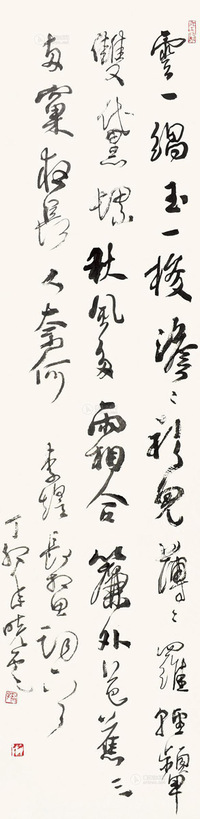 雲一緺玉一梭澹〻衫兒薄〻羅輕顰
雙黛螺秋風多雨相合簾外芭蕉三
两窠夜長人奈何 李煜長相思詞
丁酉年